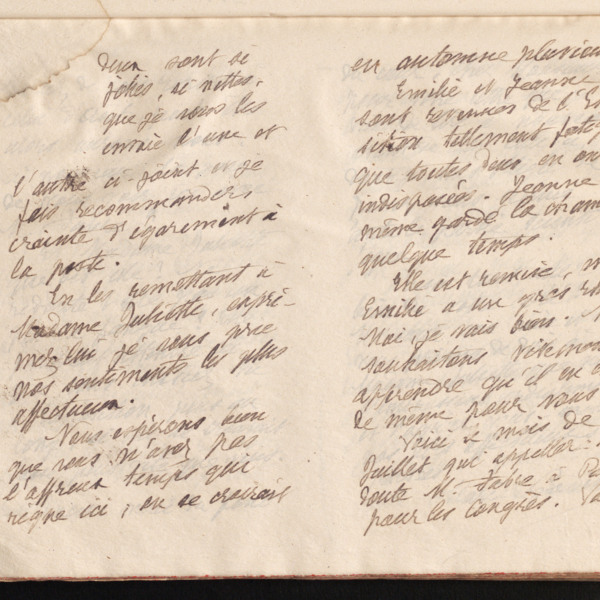 deux sont si
jolies, si nettes,
que je vous les
envoie l'une et
l'autre ci-joint et je
fais recommander,
crainte d'égarement à
la poste.
En les remettant à
Madame Juliette, expri-
mez lui je vous prie
nos sentiments les plus
affectueux.
Nous espérons bien
que vous n'avez pas
l'affreux temps qui
règne ici ; on se croirait
en automne pluvieux
Emilie et Jeanne
sont revenues de l'Ex
sition tellement fatig
que toutes deux en on
indisposées. Jeanne
même gardé la cham
quelque temps.
Elle est remise, m
Emilie a un gros rh
Moi je vais bien. N
souhaitons vivemen
apprendre qu'il en e
de même pour vous
Voici le mois de
Juillet qui appeller
doute M. Fabre à Pa
pour les Congrès. Vo